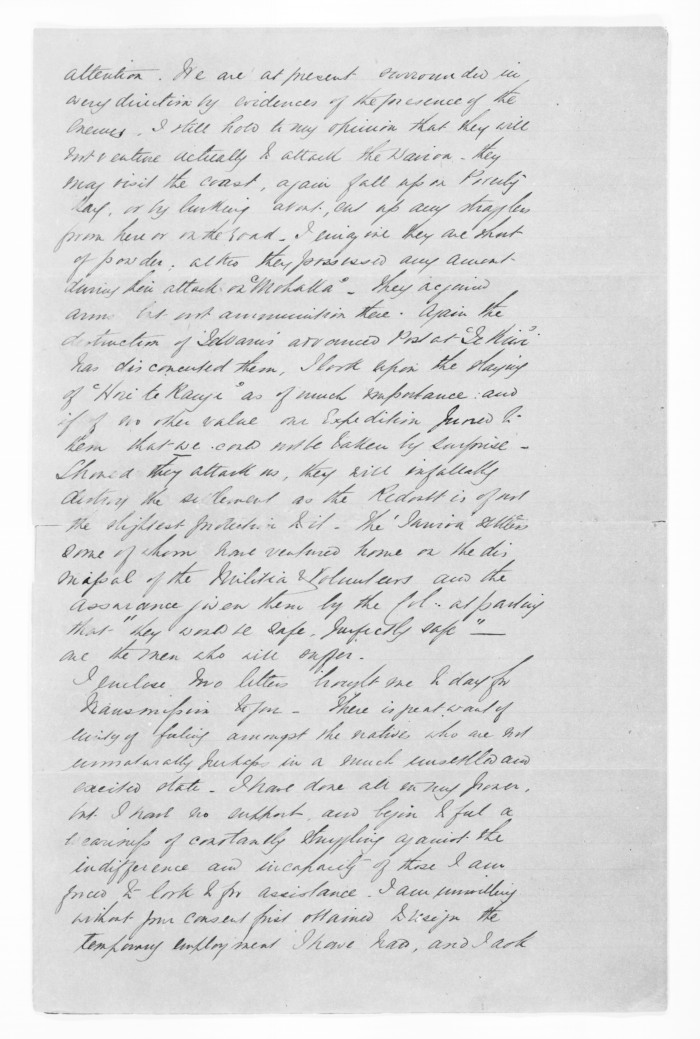 attention. We are at present surrounded in
every direction by evidences of the presence of the
Enemy. I still hold to my opinion that they will
not venture actually to attack the Wairoa - they
may visit the coast, again fall upon Poverty
Bay, or by lurking about, cut up any stragglers
from here or on the road. I imagine they are short
of powder, altho they possessed any amount
during their attack on "Mohaka" - They acquired
arms but not ammunition there. Again the
destruction of advanced Post at "Te Kiwi"
has disconcerted them, I look upon the slaying
of "Hori te Kauji" as of much importance: and
if of no other value our Expedition proved to
them that we could not be taken by surprise -
Should they attack us, they will infallably
destroy the settlement as the Redoubt is of not
the slightest protection to it - The settlers
some of whom have ventured home on the dis
missal of the Militia & Volunteers and the
assurance given them by the Col. at parting
that "they would be safe, perfectly safe" —
are the men who will suffer.
I enclose two letters brought me to day for
transmission to you - There is great want of
unity of feeling amongst the natives who are not
unnaturally perhaps in a much unsettled and
excited state - I have done all in my power,
but I have no support and begin to feel a
weariness of constantly struggling against the
indifference and incapacity of those I am
forced to look to for assistance. I am unwilling
without your consent first obtained to resign the
temporary employment I have had, and I ask